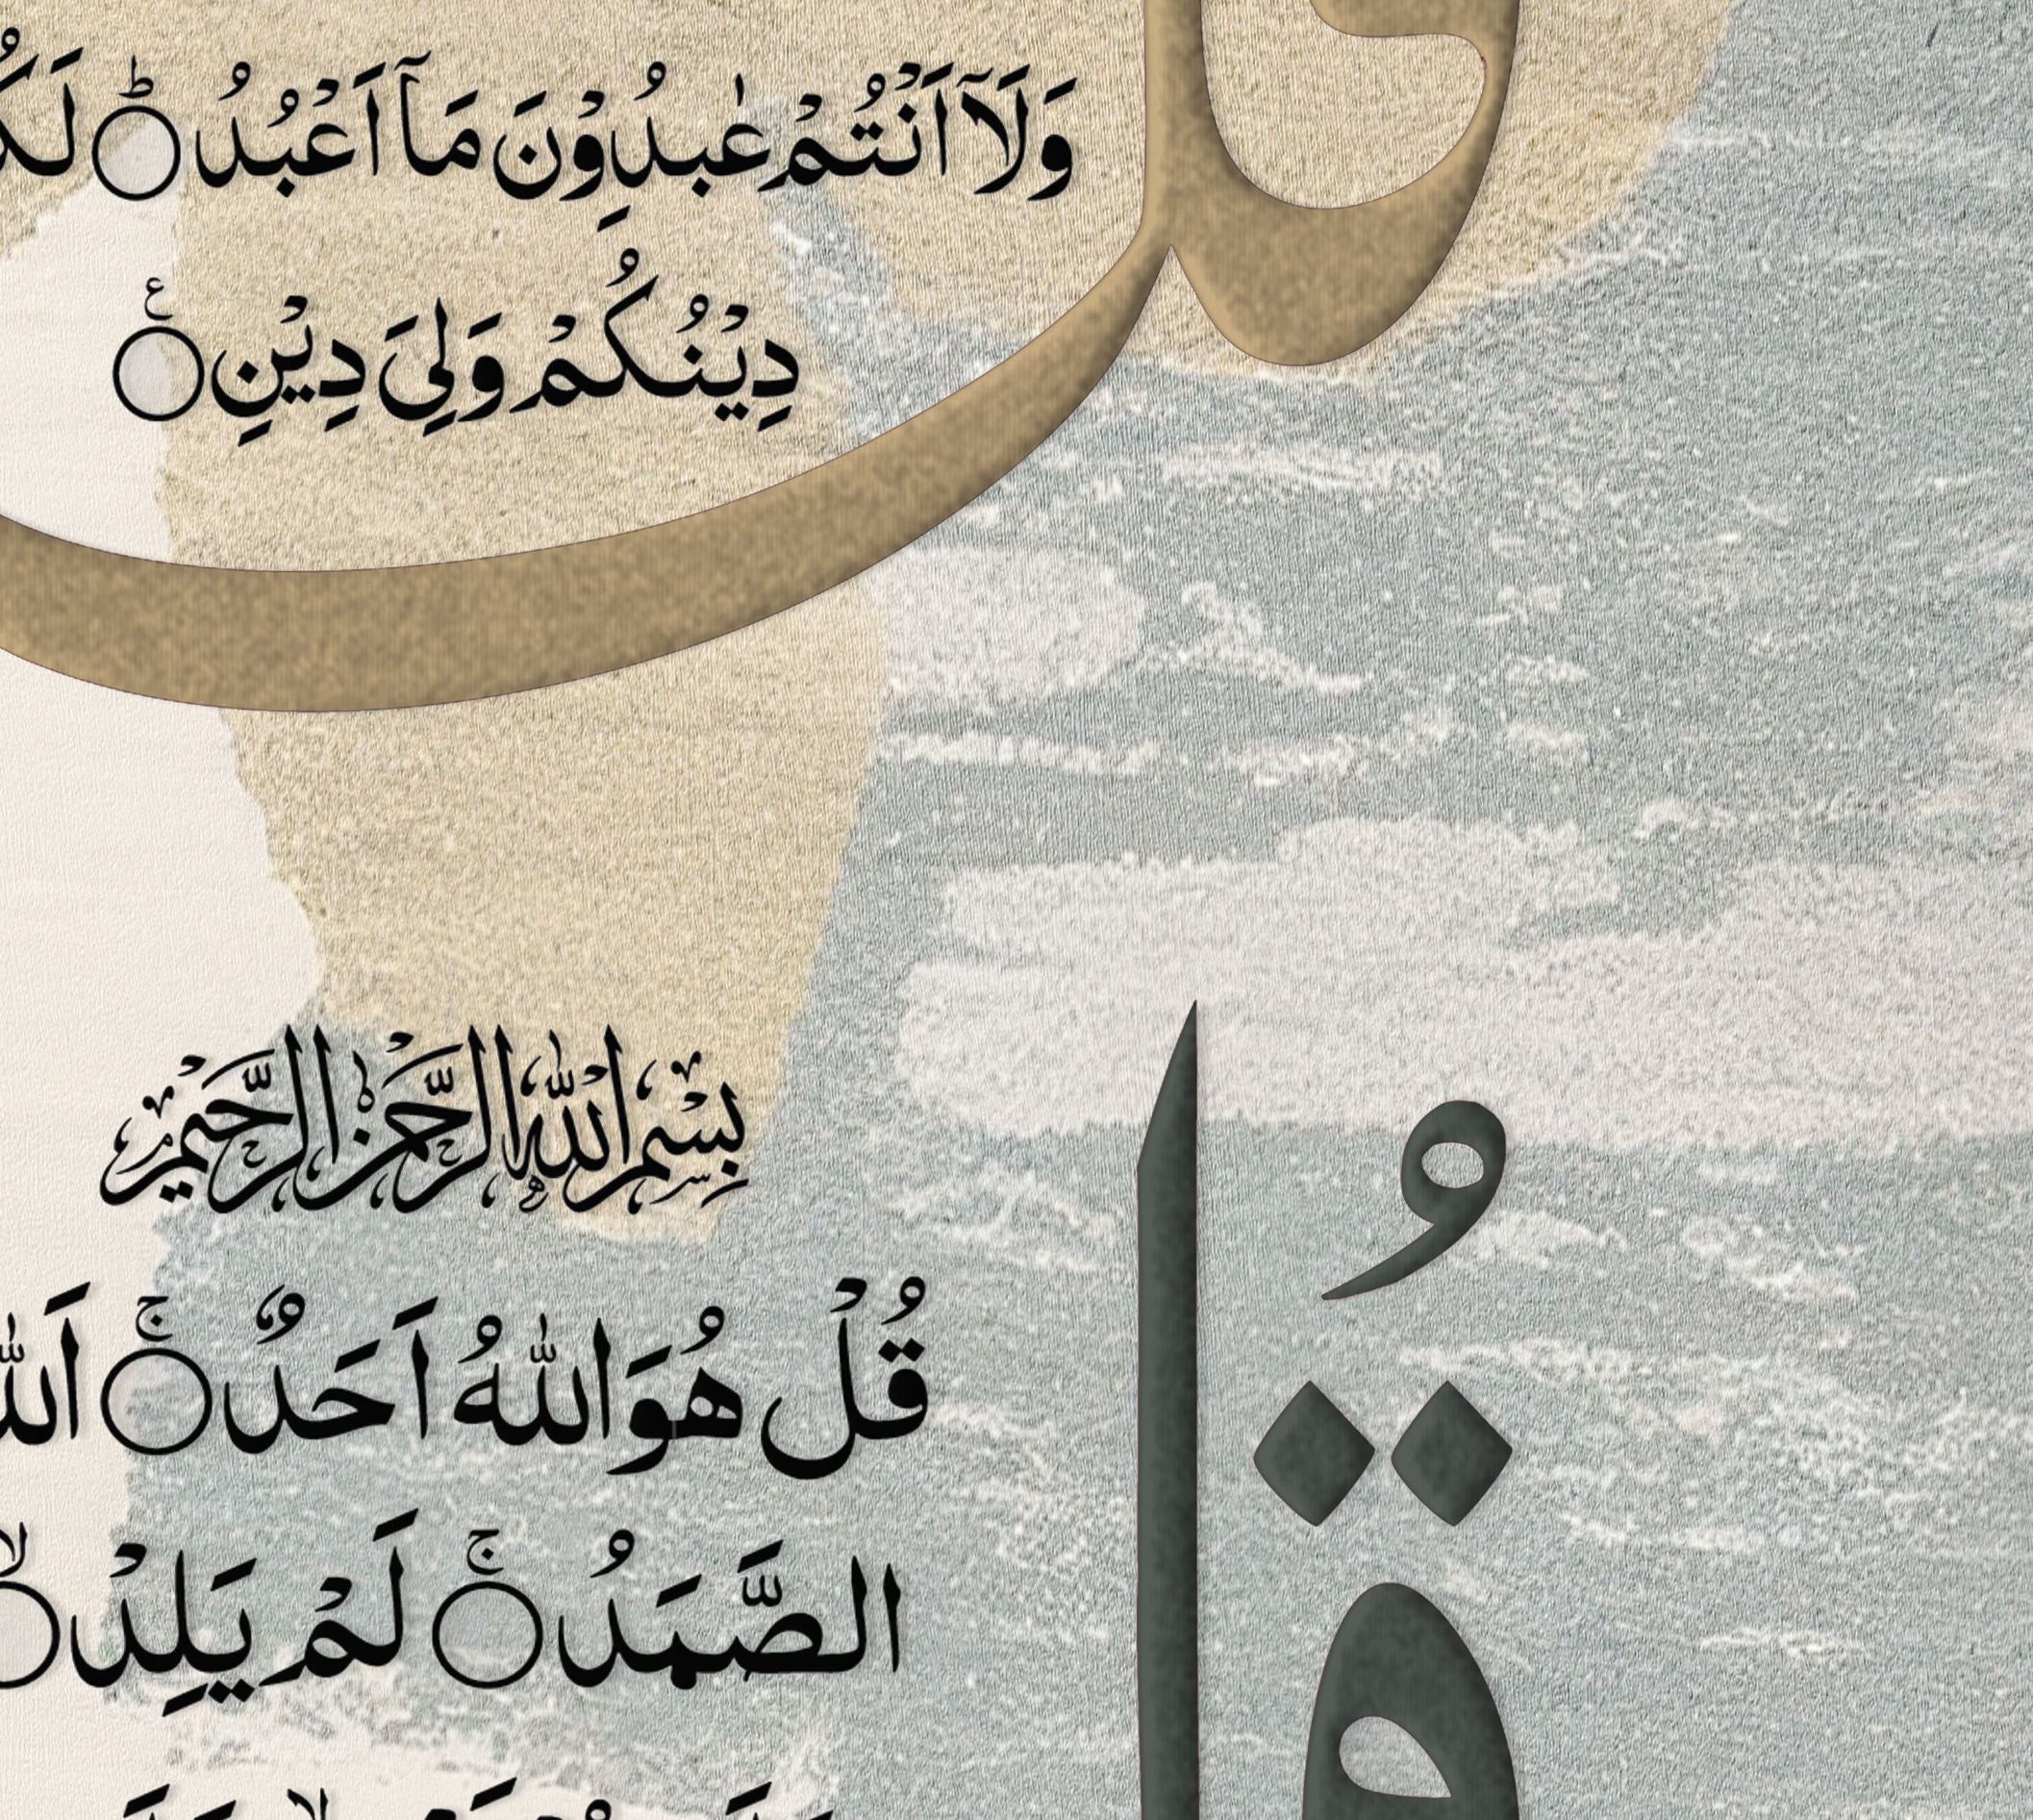 وَلَآ اَنْتُمْ عٰبِدُوْنَ مَآ اَعْبُدُ ؕ
دِيْنُكُمْ وَلِيَ دِيْنِ
قُلْ
بِسْمِ اللّٰهِ الرَّحْمٰنِ الرَّحِيْمِ
قُلْ هُوَ اللّٰهُ اَحَدٌ ۚ
الصَّمَدُ ۚ لَمْ يَلِدْ ۙ
قُل